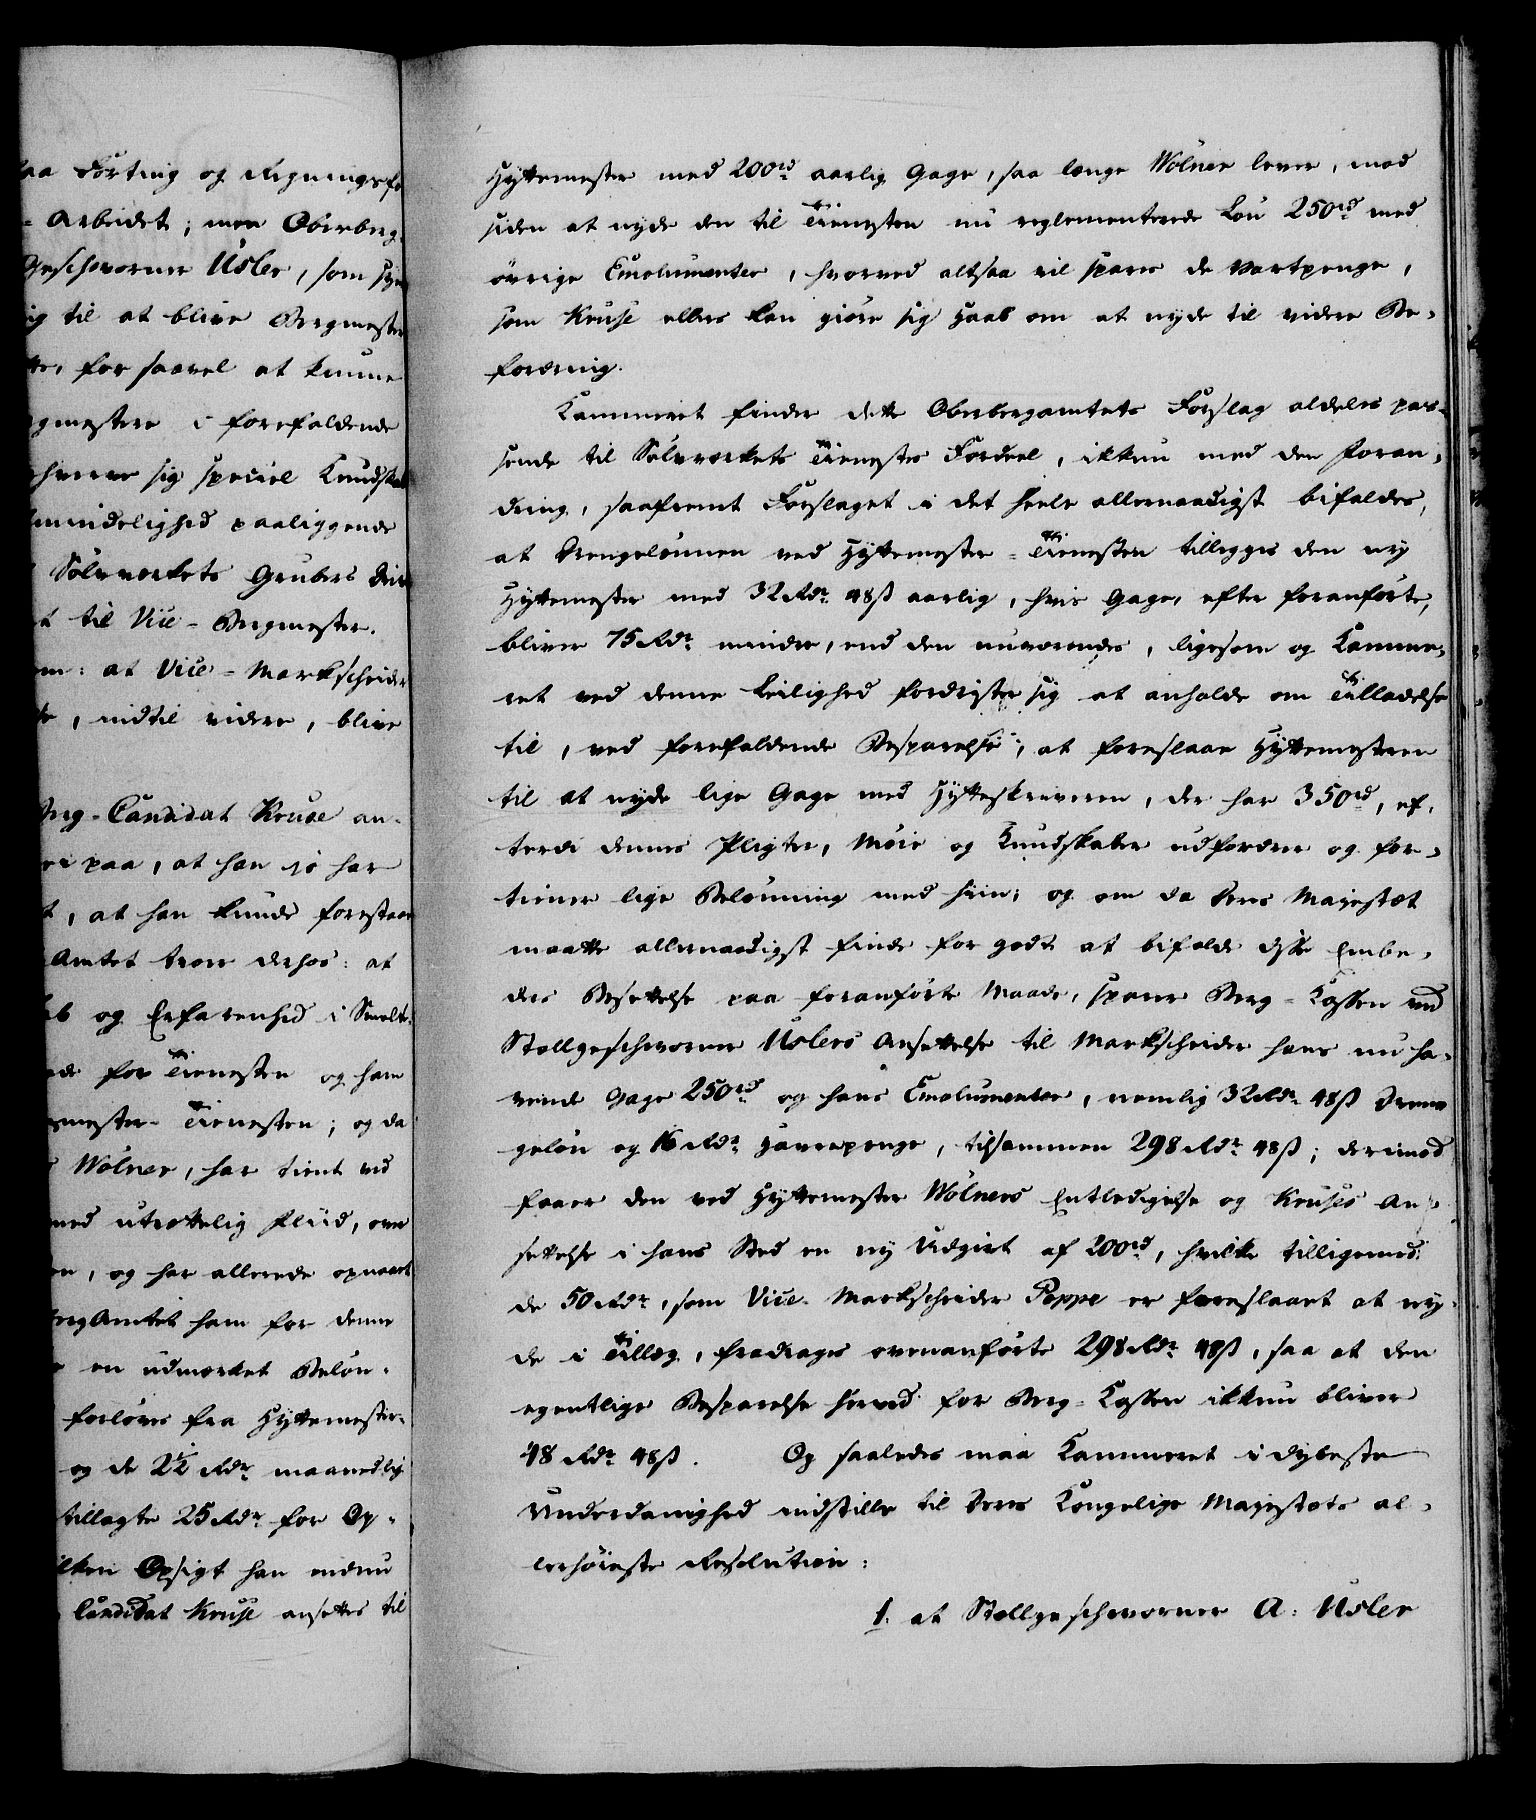 aa Førting og Regningsfø
= Arbeidet; men Oberberg-
Geschworner Usler, som syn
ig til at blive Bergmester
tte, for saavel at kunne
gmestere i forefaldende
hverve sig speciel Kundskab
lmindelighed paaliggende
Sølvverkets Grubers Drivt
t til Vice-Bergmester.
em: at Vice-Markscheider
se, indtil videre, blive
Berg-Candidat Kruse an-
ei paa, at han jo har
t, at han kunde forestaae
Amtet troer derhos: at
ab og Erfarenhed i Smelte-
ede for Tienesten og ham
emester-Tienesten; og da
Wölner, har tient ved
med utrættelig Fliid, over
en, og har allerede opnaaet
ergAmtet ham for denne
en udmærket Beløn-
forløves fra Hyttemester-
og de 2½ Rdr maanedlig
tillagte 25 Rdr for Op-
ilken Opsigt han endnu
Candidat Kruse ansættes til
Hyttemester med 200rd aarlig Gage, saa længe Wölner lever, mod
siden at nyde den til Tienesten nu reglementerede Løn 250rd med
øvrige Emolumenter, hvorved altsaa vil spares de Vartpenge,
som Kruse ellers kan giøre sig Haab om at nyde til videre Be-
fordring.
Kammeret finder dette Oberbergamtets Forslag aldeles pas-
sende til Sølvverkets Tienestes Fordeel, ikkun med den Foran-
dring, saafremt Forslaget i det heele allernaadigst bifaldes,
at Drengelønnen ved Hyttemester-Tienesten tillægges den ny
Hyttemester med 32 Rdr 48 ß aarlig, hvis Gage, efter foranførte,
bliver 75 Rdr mindre, end den nuværendes, ligesom og Kamme-
ret ved denne Leilighed fordrister sig at anholde om Tilladelse
til, ved forefaldende Besparelse, at foreslaae Hyttemesteren
til at nyde lige Gage med Hytteskriveren, der har 350rd, ef-
terdi dennes Pligter, Møie og Kundskaber udfordrer og for-
tiener lige Belønning med hiin; og om da Deres Majestæt
maatte allernaadigst finde for godt at bifalde disse Embe-
ders Besættelse paa foranførte Maade, sparer Berg-Kassen ved
Stollgeschworner Uslers Ansættelse til Markscheider hans nu ha-
vende Gage 250rd og hans Emolumenter, nemlig 32 Rdr 48 ß Dren-
geløn og 16 Rdr Havrepenge, tilsammen 298 Rdr 48 ß; derimod
faaer den ved Hyttemester Wölners Entledigelse og Kruses An-
sættelse i hans Sted en ny Udgivt af 200rd, hvilke tilligemed
de 50 Rdr, som Vice-Markscheider Poppe er foreslaaet at ny-
de i Tillæg, fradrages ovenanførte 298 Rdr 48 ß, saa at den
egentlige Besparelse herved for Berg-Kassen ikkun bliver
48 Rdr 48 ß. Og saaledes maa Kammeret i dybeste
Underdanighed indstille til Deres Kongelige Majestæts al-
lerhøieste Resolution:
1. at Stollgeschworner A: Usler